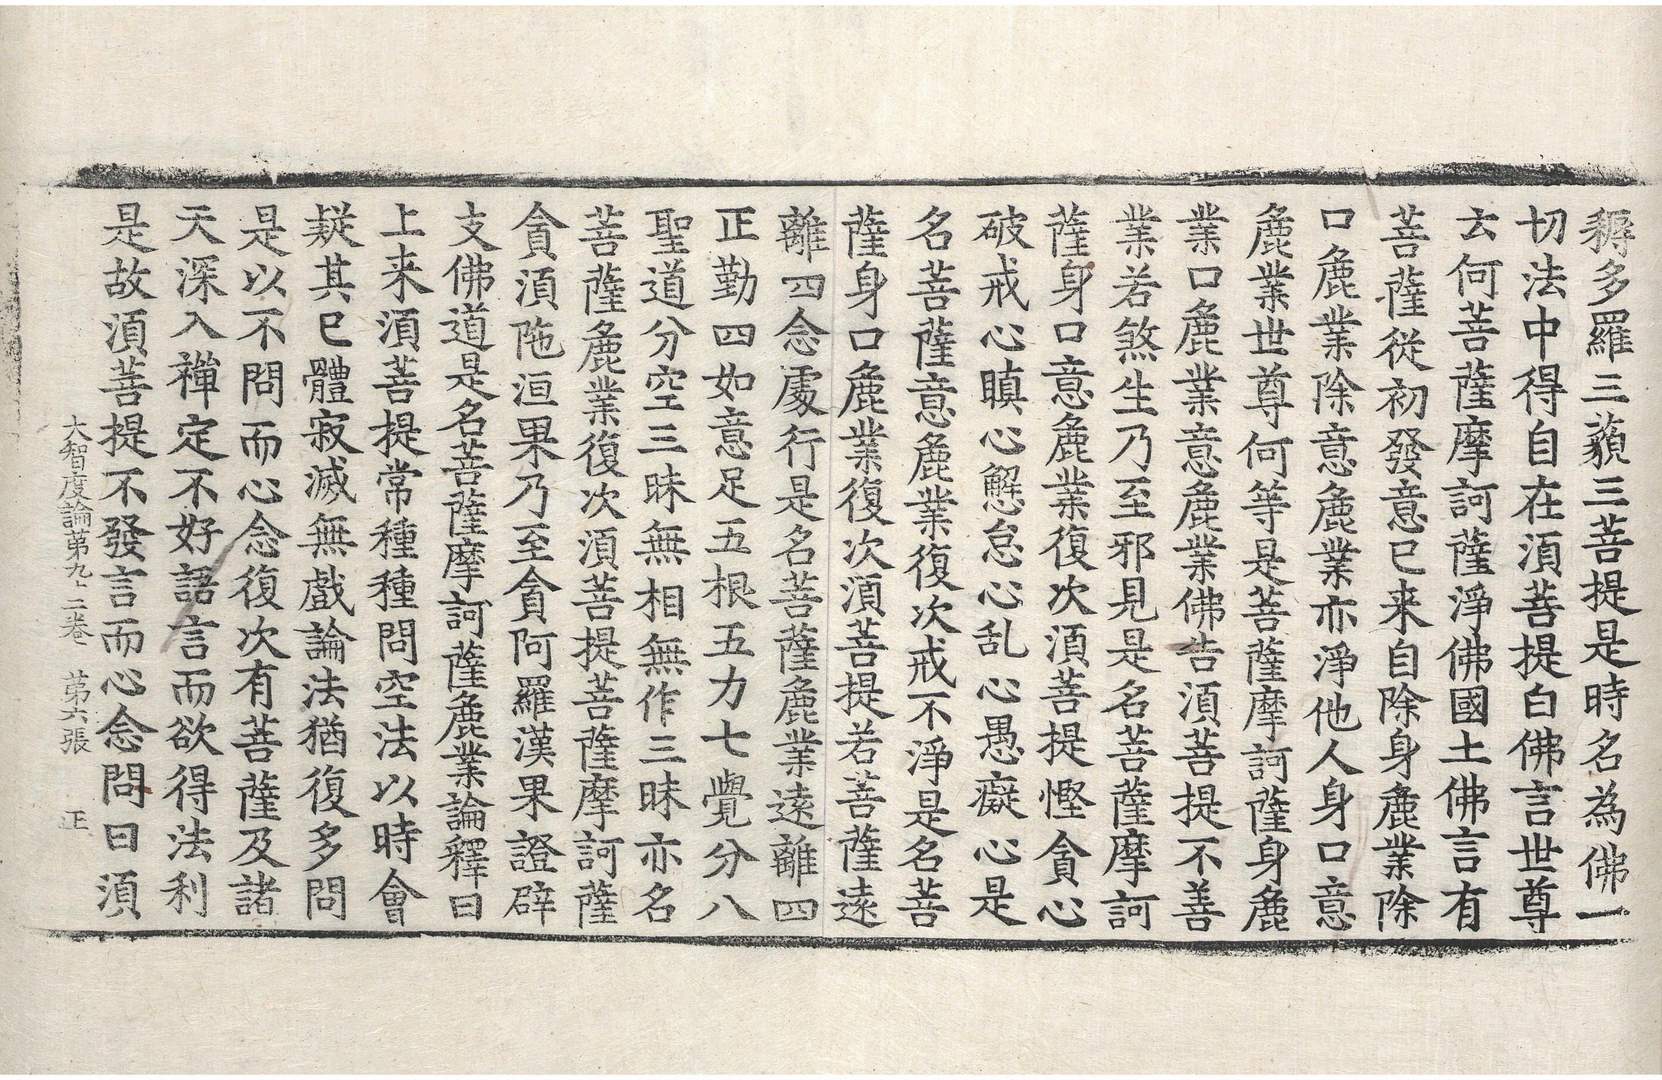 耨多羅三藐三菩提是時名為佛一
切法中得自在湏菩提白佛言世尊
云何菩薩摩訶薩淨佛國土佛言有
菩薩從初發意已来自除身麁業除
口麁業除意麁業亦淨他人身口意
麁業世尊何等是菩薩摩訶薩身麁
業口麁業意麁業佛告湏菩提不善
業若煞生乃至邪見是名菩薩摩訶
薩身口意麁業復次湏菩提慳貪心
破戒心瞋心懈怠心乱心愚癡心是
名菩薩意麁業復次戒不淨是名菩
薩身口麁業復次湏菩提若菩薩遠
離四念處行是名菩薩麁業遠離四
正勤四如意足五根五力七覺分八
聖道分空三昧無相無作三昧亦名
菩薩麁業復次湏菩提菩薩摩訶薩
貪湏陁洹果乃至貪阿羅漢果證辟
支佛道是名菩薩摩訶薩麁業論釋曰
上来湏菩提常種種問空法以時會
疑其已體寂滅無戲論法猶復多問
是以不問而心念復次有菩薩及諸
天深入禪定不好語言而欲得法利
是故湏菩提不發言而心念問曰湏
大智度論苐九十二卷 苐六張 正